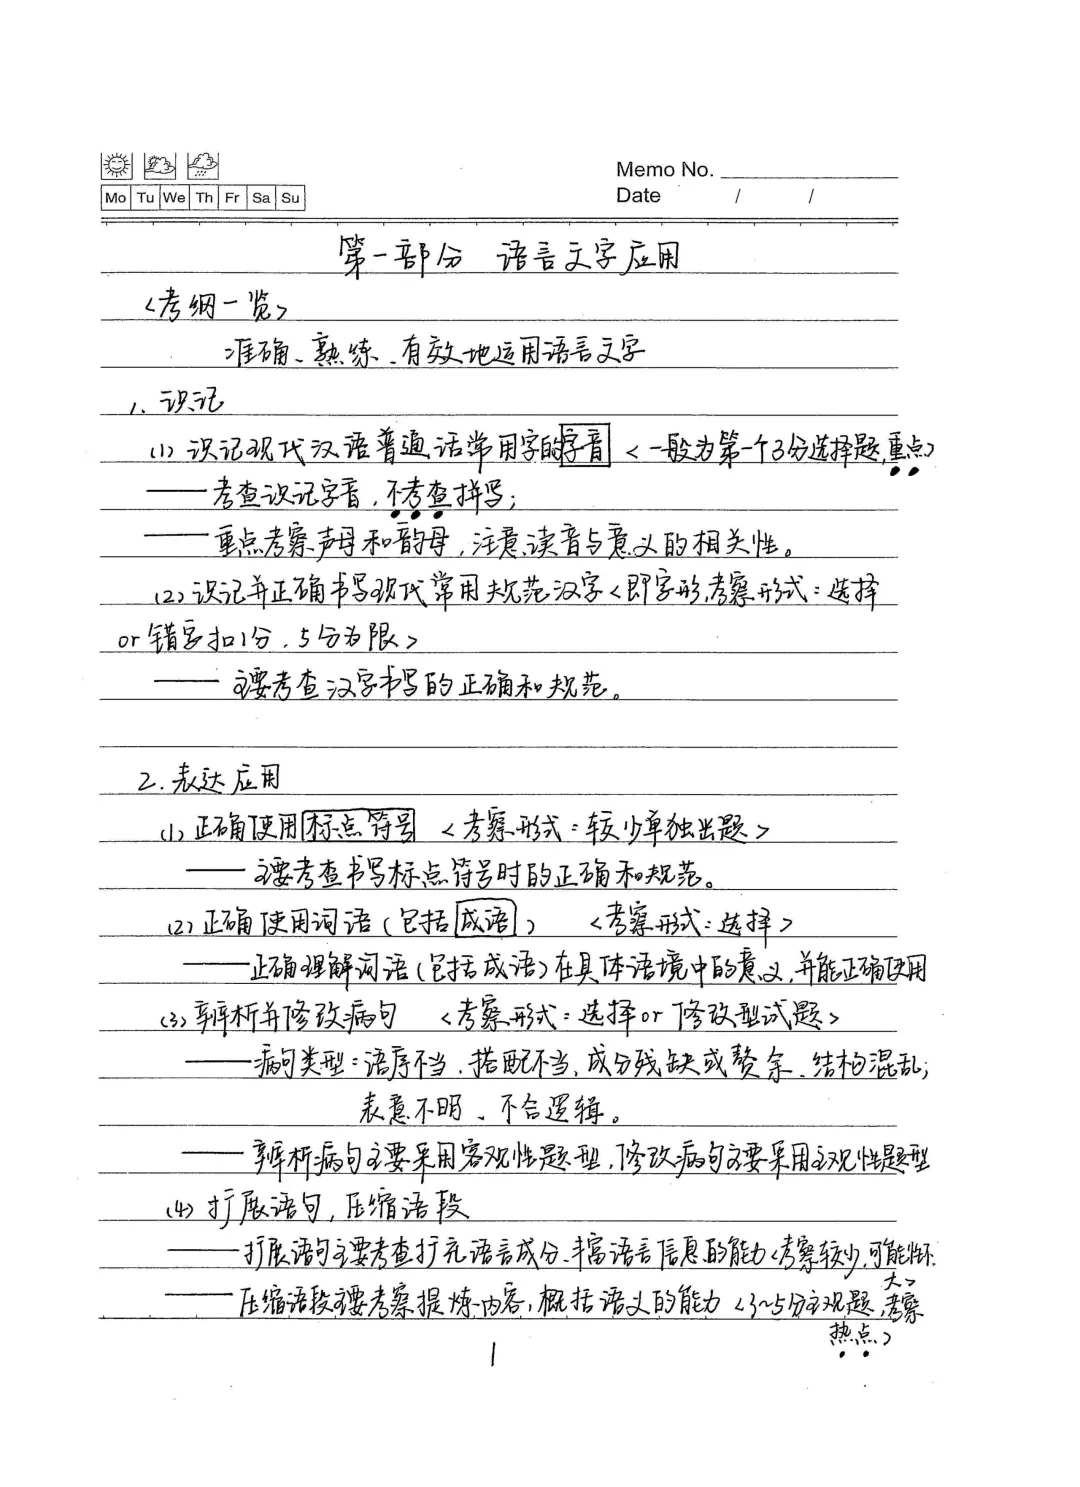 Memo No.
Mo Tu We Th Fr Sa Su
Date / /
第一部分 语言文字应用
<考纲一览>
准确、熟练、有效地运用语言文字
1. 识记
(1) 识记现代汉语普通话常用字的字音 <一般为第一个3分选择题,重点>
——考查识记字音,不考查拼写;
——重点考察声母和韵母,注意读音与意义的相关性。
(2) 识记并正确书写现代常用规范汉字<即字形,考察形式:选择
or 错字扣1分,5分为限>
——主要考查汉字书写的正确和规范。
2. 表达应用
(1) 正确使用标点符号 <考察形式:较少单独出题>
——主要考查书写标点符号时的正确和规范。
(2) 正确使用词语(包括成语) <考察形式:选择>
——正确理解词语(包括成语)在具体语境中的意义,并能正确使用
(3) 辨析并修改病句 <考察形式:选择or 修改型试题>
——病句类型:语序不当、搭配不当、成分残缺或赘余、结构混乱;
表意不明、不合逻辑。
——辨析病句主要采用客观性题型,修改病句主要采用主观性题型
(4) 扩展语句,压缩语段
——扩展语句主要考查扩充语言成分、丰富语言信息的能力<考察较少,可能性不
大>
——压缩语段主要考察提炼内容,概括语义的能力 <3~5分主观题,考察
热点>
1